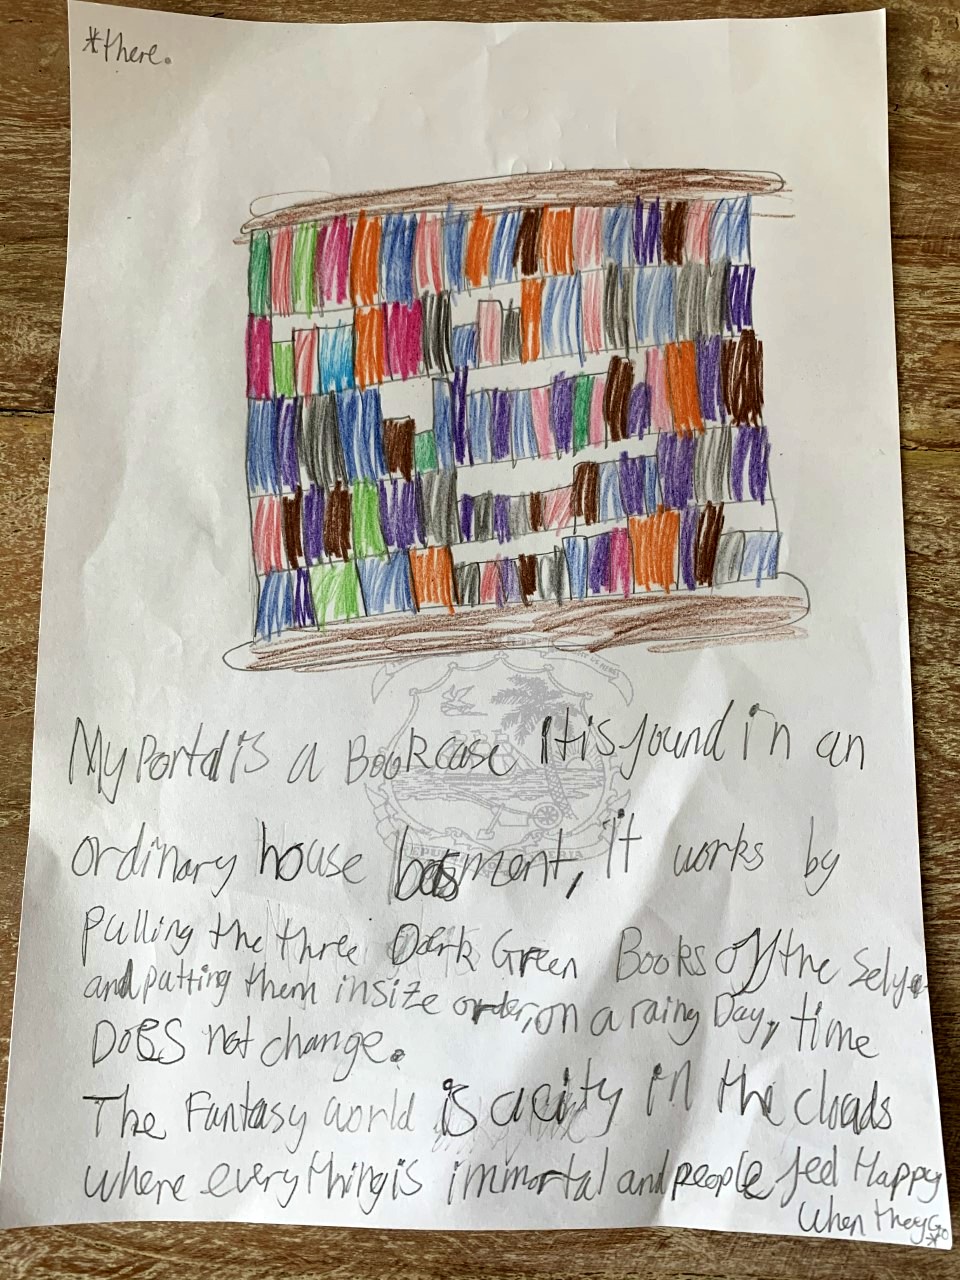 *there.
My Portal is a Bookcase It is found in an
ordinary house basment, It works by
pulling the three Dark Green Books off the selfe
and putting them in size order, on a rainy Day, time
DoES not change.
The Fantasy world is a city in the clouds
where everything is immortal and people feel Happy
when they Go
*